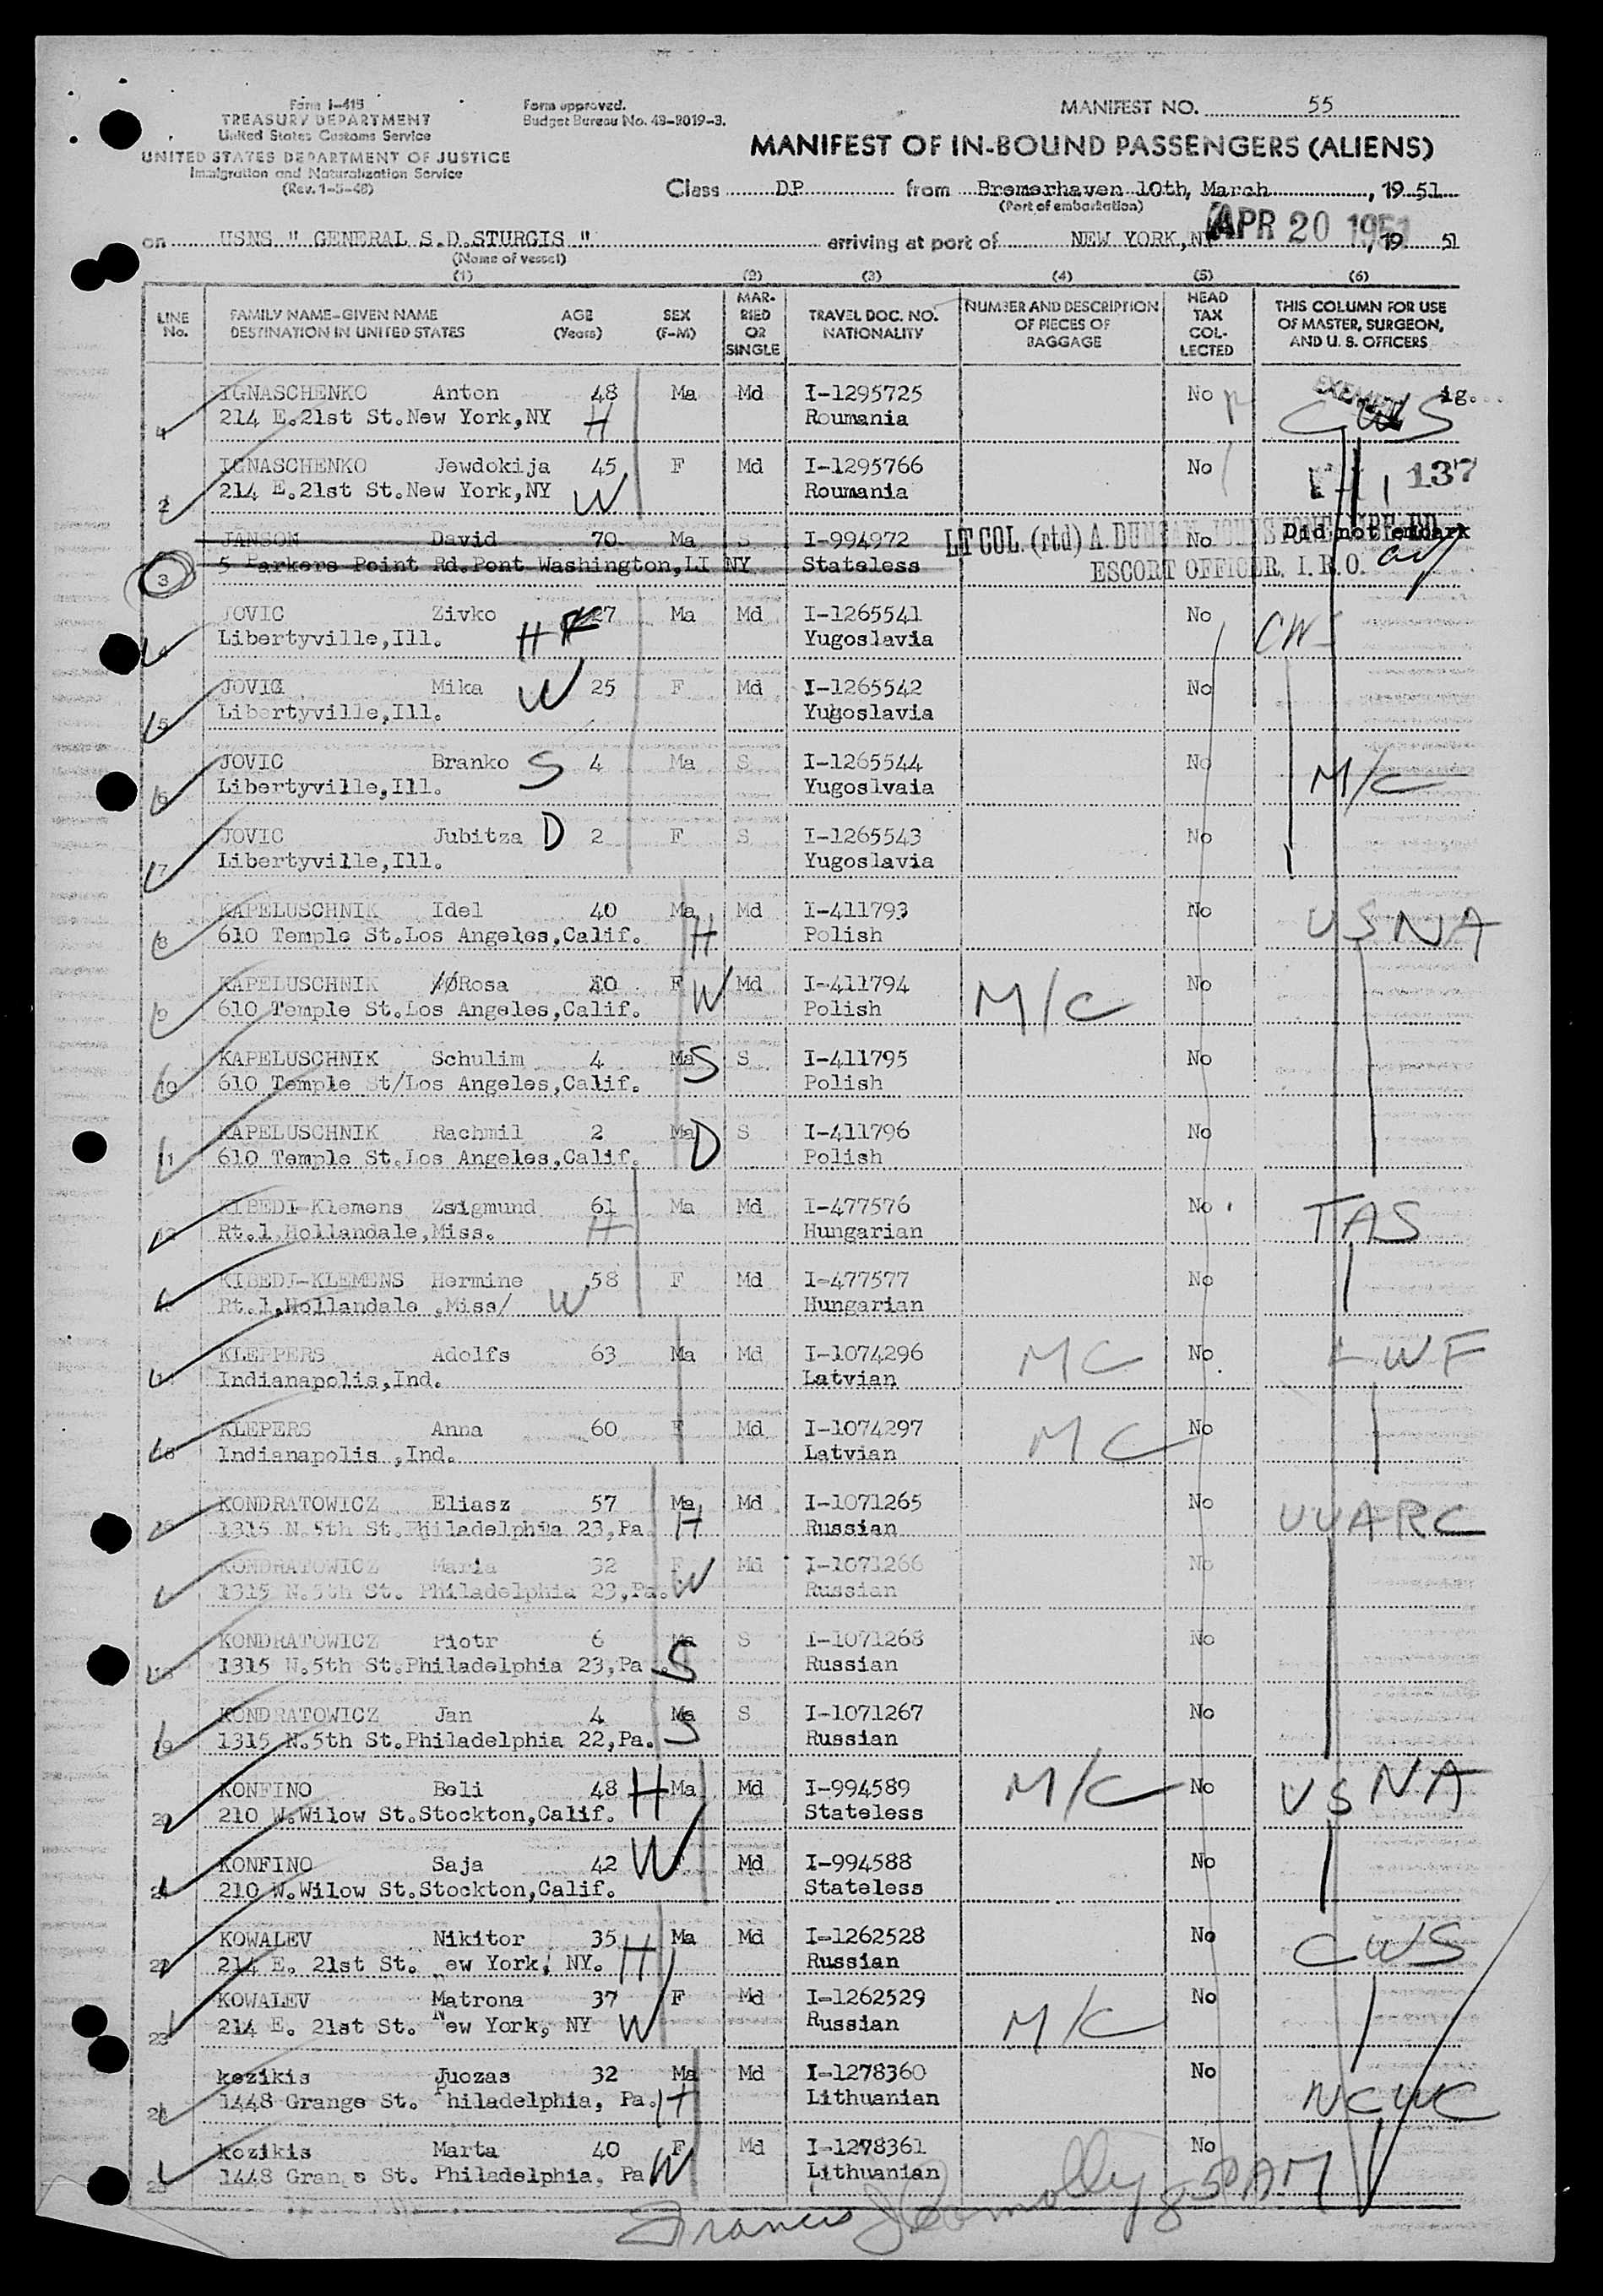 Form I-415
TREASURY DEPARTMENT
United States Customs Service
UNITED STATES DEPARTMENT OF JUSTICE
Immigration and Naturalization Service
(Rev. 1-5-48)
Form approved.
Budget Bureau No. 43-R019-3.
MANIFEST NO. 55
MANIFEST OF IN-BOUND PASSENGERS (ALIENS)
Class DP from Bremerhaven 10th, March, 19 51
(Port of embarkation)
on USNS " GENERAL S.D.STURGIS " arriving at port of NEW YORK,NY APR 20 1951, 19 51
(Name of vessel)
(1) (2) (3) (4) (5) (6)
LINE No. FAMILY NAME-GIVEN NAME DESTINATION IN UNITED STATES AGE (Years) SEX (F-M) MARRIED OR SINGLE TRAVEL DOC. NO. NATIONALITY NUMBER AND DESCRIPTION OF PIECES OF BAGGAGE HEAD TAX COLLECTED THIS COLUMN FOR USE OF MASTER, SURGEON, AND U. S. OFFICERS
IGNASCHENKO Anton 48 Ma Md I-1295725 No ig.
214 E.21st St.New York,NY H Roumania CWS
2 IGNASCHENKO Jewdokija 45 F Md I-1295766 No 137
214 E.21st St.New York,NY W Roumania
JANSON David 70 Ma S I-994972 LT COL (rtd) A. No Did not embark
3 5 Parkers Point Rd.Pont Washington,LI NY Stateless ESCORT OFFICER. I.R.O.
4 JOVIC Zivko 27 Ma Md I-1265541 No CWS
Libertyville,Ill. H Yugoslavia
5 JOVIC Mika W 25 F Md I-1265542 No
Libertyville,Ill. Yugoslavia
6 JOVIC Branko S 4 Ma S I-1265544 No M/C
Libertyville,Ill. Yugoslvaia
7 JOVIC Jubitza D 2 F S I-1265543 No
Libertyville,Ill. Yugoslavia
8 KAPELUSCHNIK Idel 40 Ma Md I-411793 No USNA
610 Temple St.Los Angeles,Calif. H Polish
9 KAPELUSCHNIK Rosa F W Md I-411794 M/C No
610 Temple St.Los Angeles,Calif. Polish
10 KAPELUSCHNIK Schulim 4 Ma S S I-411795 No
610 Temple St/Los Angeles,Calif. Polish
11 KAPELUSCHNIK Rachmil 2 Ma D S I-411796 No
610 Temple St.Los Angeles,Calif. Polish
KIBEDI-Klemens Zsigmund 61 Ma Md I-477576 No TAS
Rt.1,Hollandale,Miss. H Hungarian
KIBEDI-KLEMENS Hermine 58 F Md I-477577 No
Rt.1,Hollandale ,Miss/ W Hungarian
KLEPPERS Adolfs 63 Ma Md I-1074296 MC No LWF
Indianapolis,Ind. Latvian
KLEPERS Anna 60 F Md I-1074297 MC No
Indianapolis ,Ind. Latvian
KONDRATOWICZ Eliasz 57 Ma Md I-1071265 No UUARC
1315 N.5th St.Philadelphia 23,Pa H Russian
KONDRATOWICZ Maria 32 F Md I-1071266 No
1315 N.5th St. Philadelphia 23,Pa. W Russian
KONDRATOWICZ Piotr 6 Ma S I-1071268 No
1315 N.5th St.Philadelphia 23,Pa. S Russian
19 KONDRATOWICZ Jan 4 Ma S I-1071267 No
1315 N.5th St.Philadelphia 22,Pa. S Russian
20 KONFINO Beli 48 H Ma Md I-994589 M/C No USNA
210 W.Wilow St.Stockton,Calif. Stateless
KONFINO Saja 42 W Md I-994588 No
210 W.Wilow St.Stockton,Calif. Stateless
22 KOWALEV Nikitor 35 Ma Md I-1262528 No CWS
214 E. 21st St. New York, NY. H Russian
23 KOWALEV Matrona 37 F Md I-1262529 M/C No
214 E. 21st St. New York, NY W Russian
kozikis Juozas 32 Ma Md I-1278360 No NCWC
1448 Grange St. Philadelphia, Pa. H Lithuanian
25 kozikis Marta 40 F Md I-1278361 No
1448 Grange St. Philadelphia, Pa W Lithuanian
Francis J Connolly 850 AM